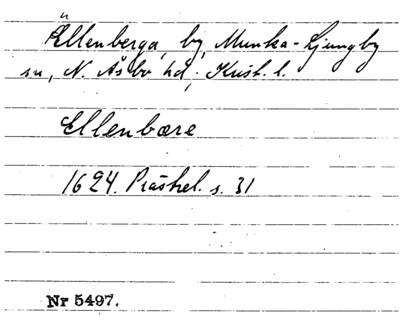 Ällenberga, by, Munka-Ljungby
sn, N. Åsbo hd, Krist. l.
Ellenbære
1624. Präsrel. s. 31
Nr 5497.